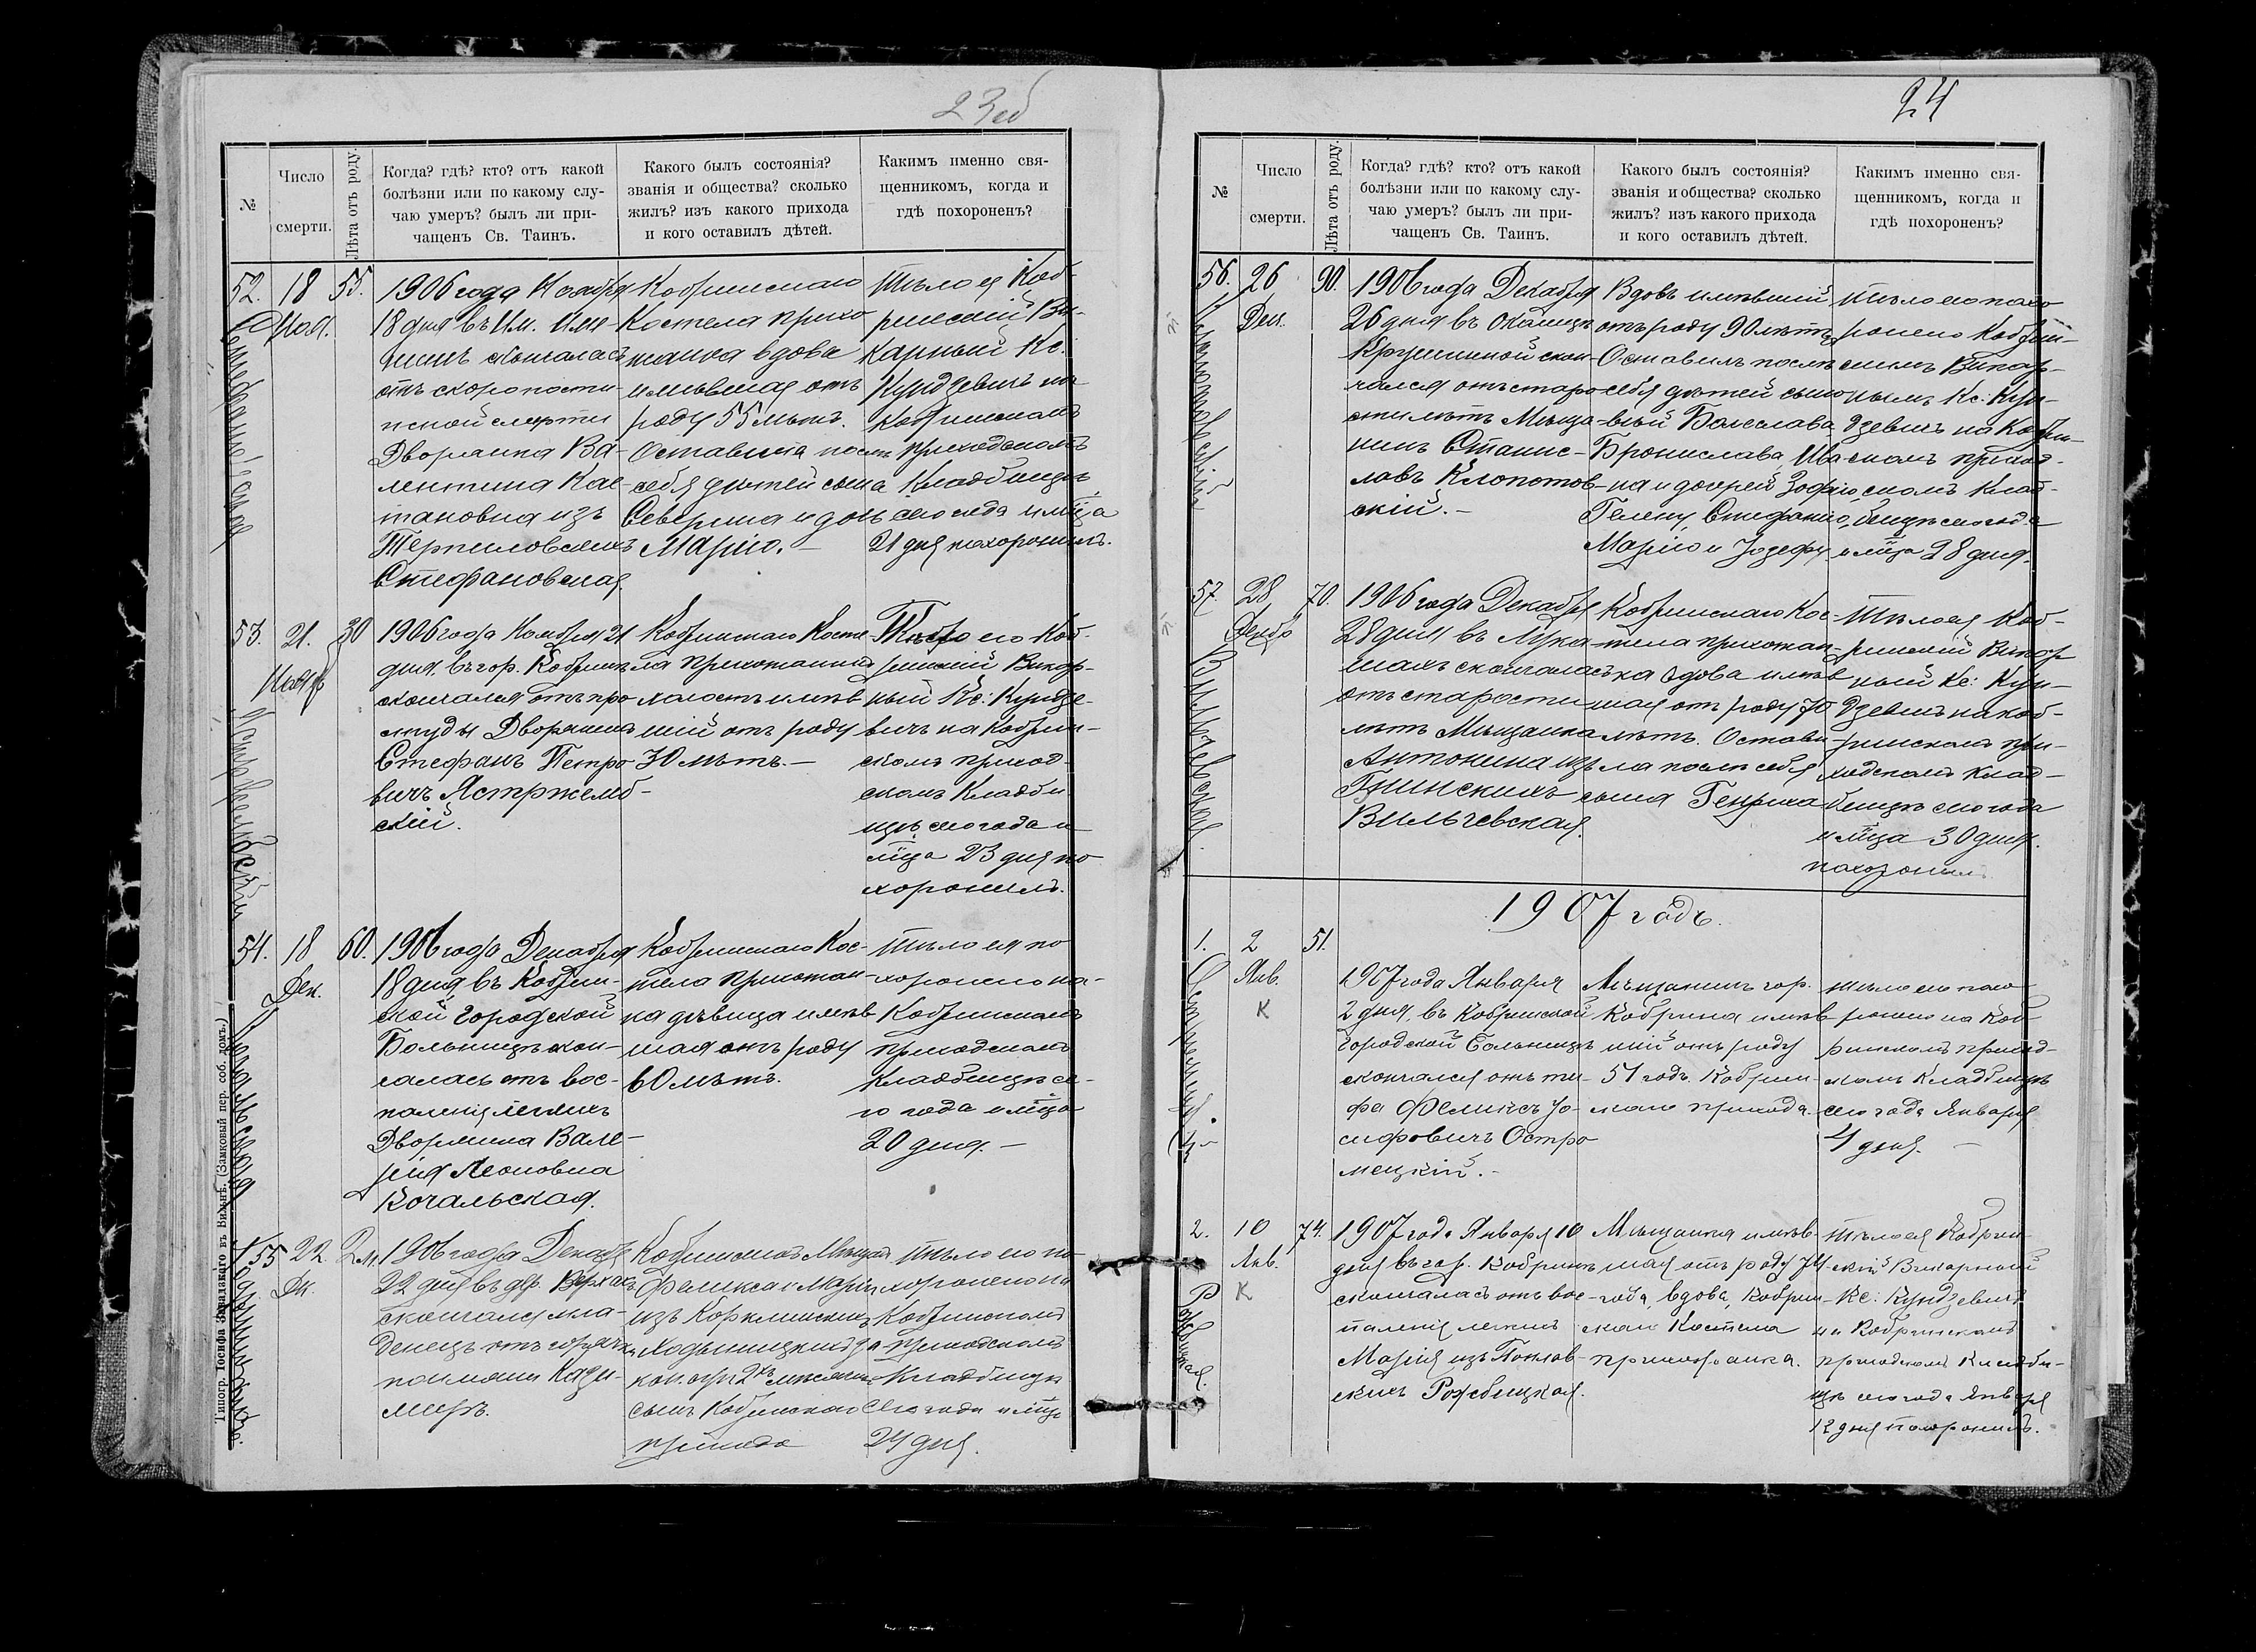 23об
№
Число
смерти.
Лѣта отъ роду.
Когда? гдѣ? кто? отъ какой
болѣзни или по какому слу-
чаю умеръ? былъ ли при-
чащенъ Св. Таинъ.
Какого былъ состоянія?
званія и общества? сколько
жилъ? изъ какого прихода
и кого оставилъ дѣтей.
Какимъ именно свя-
щенникомъ, когда и
гдѣ похороненъ?
52.
18
Ноя.
55.
Стефановская
1906 года Ноября
18 дня въ Им.
скончалась
отъ скоропости-
жной смерти
Дворянка Ва-
лентина Кае-
тановна изъ
Терпиловскихъ
Стефановская.
Кобринскаго
Костела прихо
жанка вдова
имѣвшая отъ
роду 55 лѣтъ.
Оставила послѣ
себя дѣтей сына
Северина и дочь
Марію.—
Тѣло ея Коб-
ринскій Ви-
карный Кс:
Кундзевичъ на
Кобринскомъ
приходскомъ
Кладбищѣ
сего года и м̃ца
21 дня похоронилъ.
53.
21.
Нояб
30
Ястржембскій
1906 года Ноября 21
дня, въ гор. Кобринѣ
скончался отъ про
студы Дворянинъ
Стефанъ Петро-
вичъ Ястржемб-
скій.
Кобринскаго Косте
ла прихожанинъ
холостъ имѣв
шій отъ роду
30 лѣтъ.—
Тѣло его Коб-
ринскій Викар-
ный Кс: Кундзе-
вичъ на Кобрин-
скомъ приход-
скомъ Кладби
щѣ сего года и
м̃ца 23 дня по
хоронилъ.
54.
18
Дек.
60.
Кочальская
1906 года Декабря
18 дня, въ Кобрин-
ской Городской
Больницѣ скон-
чалась отъ вос-
паленія легкихъ
Дворянка Вале-
рія Леоновна
Кочальская.
Кобринскаго Кос-
тела прихожан-
ка дѣвица имѣв
шая отъ роду
60 лѣтъ.
Тѣло ея по
хоронено на-
Кобринскомъ
приходскомъ
Кладбищѣ се-
го года и м̃ца
20 дня.—
55
22.
Дк.
2 м.
1906 года Декаб
22 дня въ др.
скончался мла-
денецъ отъ горячки
по имени Кази-
меръ.
Кобринскихъ Мѣщан
Феликса и Маріи
изъ
сынъ Кобринскаго
прихода
Тѣло его по
хоронено на
Кобринскомъ
приходскомъ
Кладбищѣ
сего года и м̃ца
24 дня.
Типогр. Іосифа Завадзкаго въ Вильнѣ. (Замковый пер. соб. домъ.)
24
№
Число
смерти.
Лѣта отъ роду.
Когда? гдѣ? кто? отъ какой
болѣзни или по какому слу-
чаю умеръ? былъ ли при-
чащенъ Св. Таинъ.
Какого былъ состоянія?
званія и общества? сколько
жилъ? изъ какого прихода
и кого оставилъ дѣтей.
Какимъ именно свя-
щенникомъ, когда и
гдѣ похороненъ?
56.
26
Дек.
90.
Клопотовскій
1906 года Декабря
26 дня въ Околицѣ
скон-
чался отъ старо
сти лѣтъ Мѣща-
нинъ Станис-
лавъ Клопотов-
скій.—
Вдовъ имѣвшій
отъ роду 90 лѣтъ
Оставилъ послѣ
себя дѣтей сыно
вьей Болеслава
Бронислава, Ива
на и дочрей Зофію
Гелену, Стефанію,
Марію и Юзефу.
тѣло его похо
ронено Кобрин-
скимъ Викар-
нымъ Кс: Кун-
дзевичъ на Кобрин-
скомъ приход-
скомъ Клад-
бищѣ сего года
и м̃ца 28 дня.
57.
28
Декбр
70.
Вильчевская
1906 года Декабря
28 дня въ
скончалась
отъ старости
лѣтъ Мѣщанка
Антонина изъ
Гнинскихъ
Вильчевская.
Кобринскаго Кос-
тела прихожан-
ка вдова имѣв
шая отъ роду 70
лѣтъ. Остави-
ла послѣ себя
сына Генриха
Тѣло ея Коб-
ринскій Викар
ный Кс: Кун-
дзевичъ на Коб-
ринскомъ при-
ходскомъ Клад-
бищѣ сего года
и м̃ца 30 дня.
похоронилъ
1907 годъ.
1.
2
Янв.
К
51.
1907 года Января
2 дня, въ Кобринской
Городской Больницѣ
скончался отъ ти-
фа Феликсъ Іо-
сифовичъ Остро
мецкій.—
Мѣщанинъ гор.
Кобрина имѣв
шій отъ роду
51 годъ. Кобрин-
скаго прихода.
тѣло его похо
ронено на Коб
ринскомъ приход-
скомъ Кладбищѣ
сего года Января
4 дня.—
2.
10
Янв.
К
74.
1907 года Января 10
дня въ гор. Кобринѣ
скончалась отъ вос-
паленія легкихъ
Марія изъ
скихъ Рожебицкая.
Мѣщанка имѣв-
шая отъ роду 74
года, вдова, Кобрин-
скаго Костела
прихожанка.
Тѣло ея Кобрин-
скій Викарный
Кс: Кундзевичъ
на Кобринскомъ
приходскомъ Кладби-
щѣ сего года Января
12 дня похоронилъ.